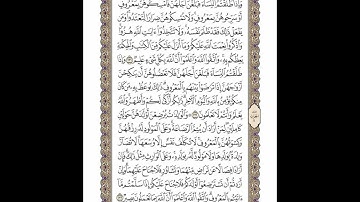 وَإِذَا طَلَّقْتُمُ ٱلنِّسَآءَ فَبَلَغْنَ أَجَلَهُنَّ فَأَمْسِكُوهُنَّ بِمَعْرُوفٍ
أَوْ سَرِّحُوهُنَّ بِمَعْرُوفٍ وَلَا تُمْسِكُوهُنَّ ضِرَارًا لِّتَعْتَدُوا۟ وَمَن
يَفْعَلْ ذَٰلِكَ فَقَدْ ظَلَمَ نَفْسَهُۥ وَلَا تَتَّخِذُوٓا۟ ءَايَٰتِ ٱللَّهِ هُزُوًا
وَٱذْكُرُوا۟ نِعْمَتَ ٱللَّهِ عَلَيْكُمْ وَمَآ أَنزَلَ عَلَيْكُم مِّنَ ٱلْكِتَٰبِ وَٱلْحِكْمَةِ
يَعِظُكُم بِهِۦ وَٱتَّقُوا۟ ٱللَّهَ وَٱعْلَمُوٓا۟ أَنَّ ٱللَّهَ بِكُلِّ شَىْءٍ عَلِيمٌ ٢٣١
وَإِذَا طَلَّقْتُمُ ٱلنِّسَآءَ فَبَلَغْنَ أَجَلَهُنَّ فَلَا تَعْضُلُوهُنَّ أَن يَنكِحْنَ
أَزْوَٰجَهُنَّ إِذَا تَرَٰضَوْا۟ بَيْنَهُم بِٱلْمَعْرُوفِ ذَٰلِكَ يُوعَظُ بِهِۦ مَن
كَانَ مِنكُمْ يُؤْمِنُ بِٱللَّهِ وَٱلْيَوْمِ ٱلْءَاخِرِ ذَٰلِكُمْ أَزْكَىٰ لَكُمْ وَأَطْهَرُ وَٱللَّهُ
يَعْلَمُ وَأَنتُمْ لَا تَعْلَمُونَ ٢٣٢ وَٱلْوَٰلِدَٰتُ يُرْضِعْنَ أَوْلَٰدَهُنَّ حَوْلَيْنِ
كَامِلَيْنِ لِمَنْ أَرَادَ أَن يُتِمَّ ٱلرَّضَاعَةَ وَعَلَى ٱلْمَوْلُودِ لَهُۥ رِزْقُهُنَّ
وَكِسْوَتُهُنَّ بِٱلْمَعْرُوفِ لَا تُكَلَّفُ نَفْسٌ إِلَّا وُسْعَهَا لَا تُضَآرَّ
وَٰلِدَةٌۢ بِوَلَدِهَا وَلَا مَوْلُودٌ لَّهُۥ بِوَلَدِهِۦ وَعَلَى ٱلْوَارِثِ مِثْلُ ذَٰلِكَ فَإِنْ
أَرَادَا فِصَالًا عَن تَرَاضٍ مِّنْهُمَا وَتَشَاوُرٍ فَلَا جُنَاحَ عَلَيْهِمَا وَإِنْ
أَرَدتُّمْ أَن تَسْتَرْضِعُوٓا۟ أَوْلَٰدَكُمْ فَلَا جُنَاحَ عَلَيْكُمْ إِذَا سَلَّمْتُم مَّآ
ءَاتَيْتُم بِٱلْمَعْرُوفِ وَٱتَّقُوا۟ ٱللَّهَ وَٱعْلَمُوٓا۟ أَنَّ ٱللَّهَ بِمَا تَعْمَلُونَ بَصِيرٌ ٢٣٣